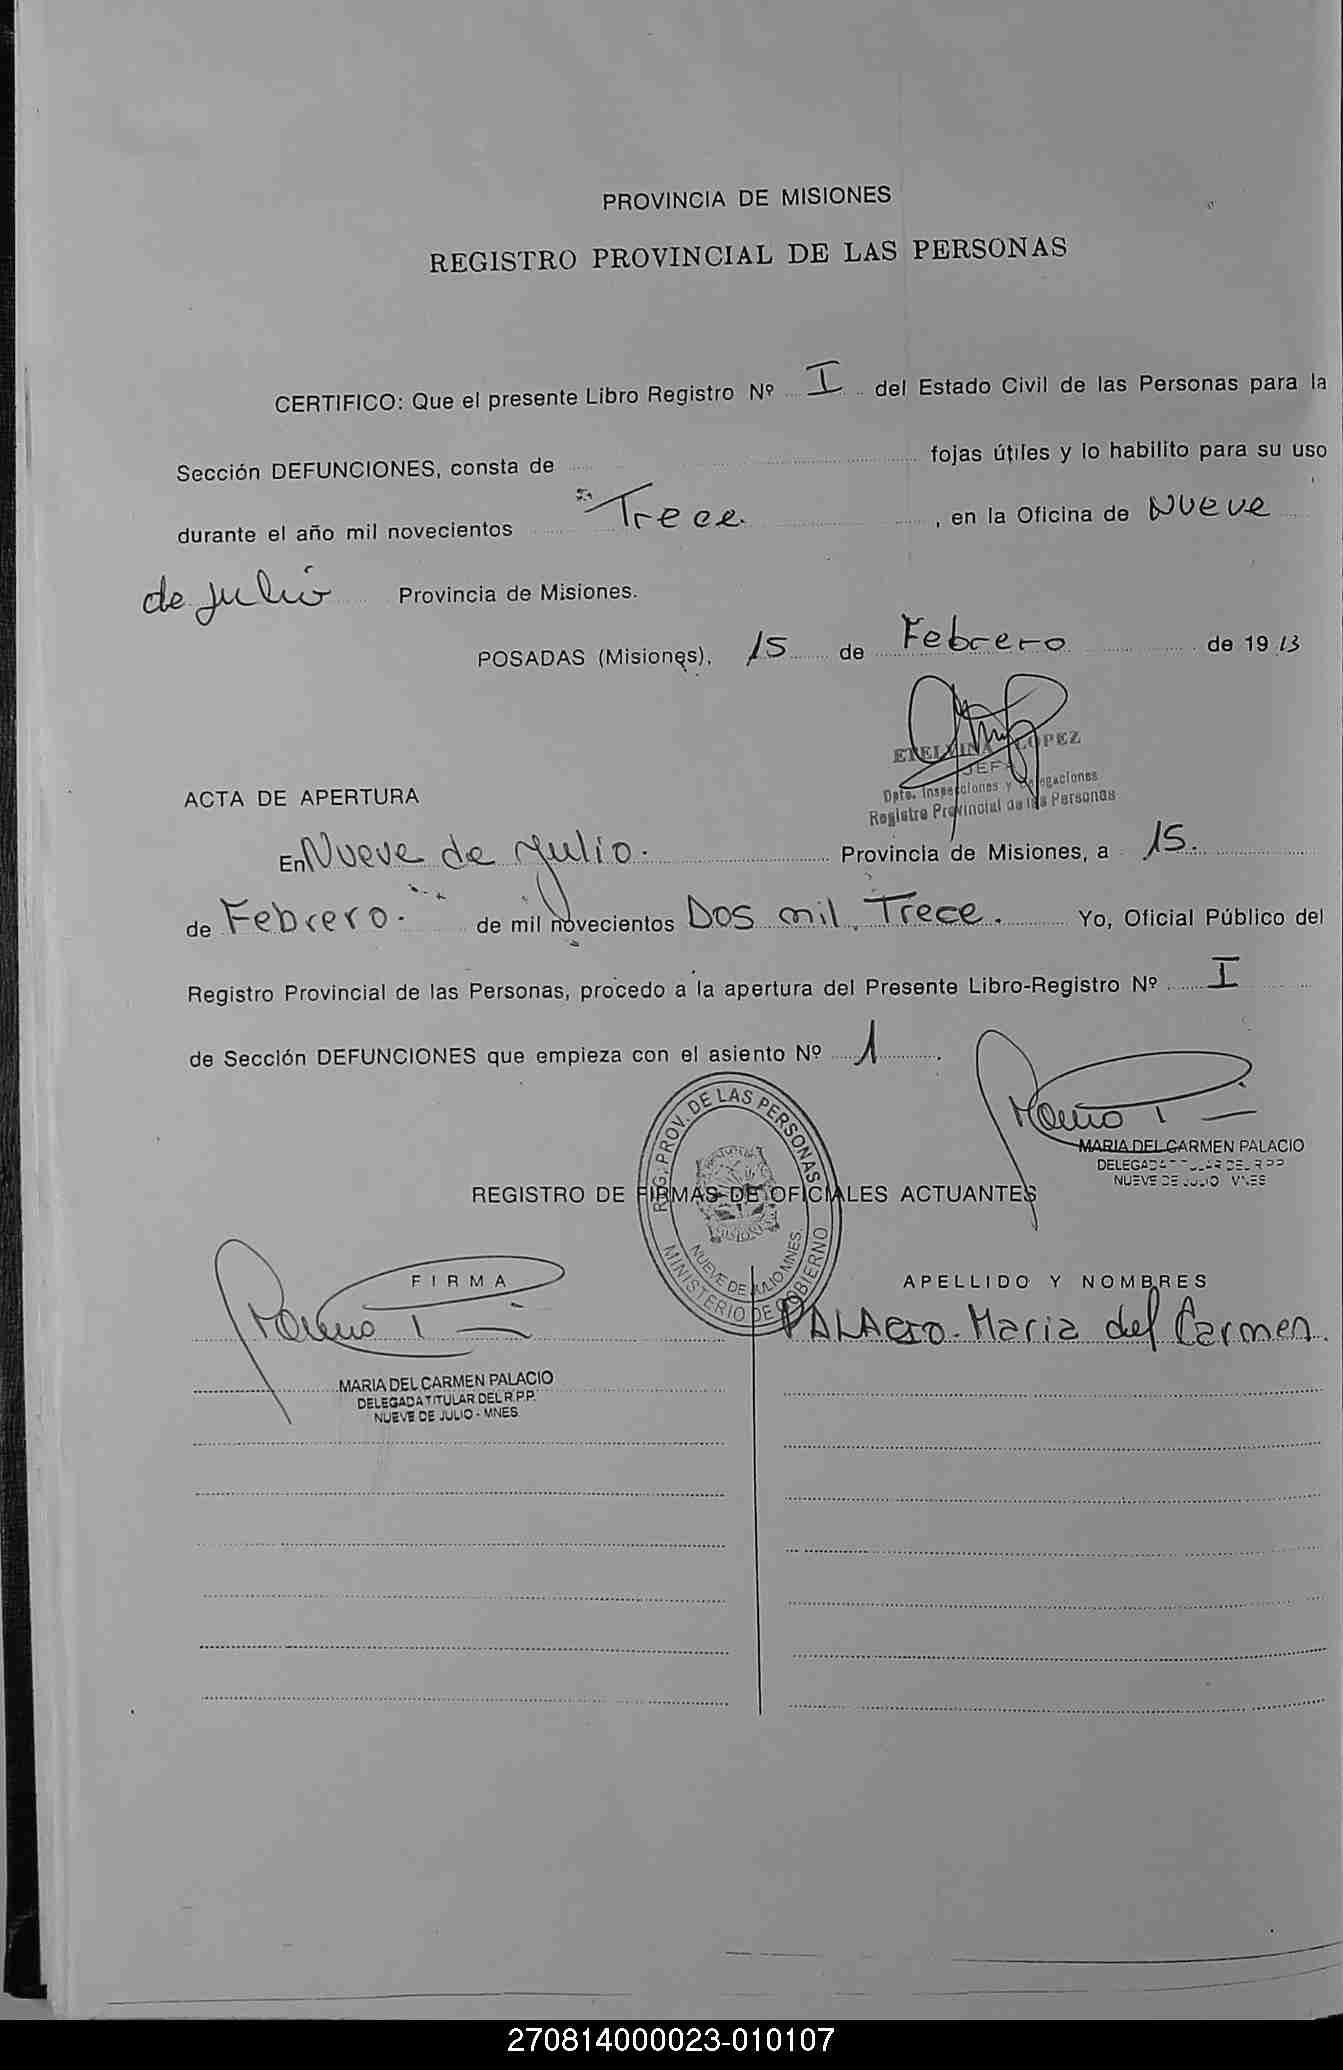 PROVINCIA DE MISIONES
REGISTRO PROVINCIAL DE LAS PERSONAS
CERTIFICO: Que el presente Libro Registro Nº I del Estado Civil de las Personas para la
Sección DEFUNCIONES, consta de fojas útiles y lo habilito para su uso
durante el año mil novecientos Trece , en la Oficina de Nueve
de Julio Provincia de Misiones.
POSADAS (Misiones), 15 de Febrero de 19 13
ETELVINA LOPEZ
JEFA
Dpto. Inspecciones y Delegaciones
Registro Provincial de las Personas
ACTA DE APERTURA
En Nueve de Julio. Provincia de Misiones, a 15.
de Febrero. de mil novecientos Dos mil Trece. Yo, Oficial Público del
Registro Provincial de las Personas, procedo a la apertura del Presente Libro-Registro Nº I
de Sección DEFUNCIONES que empieza con el asiento Nº 1 .
MARIA DEL CARMEN PALACIO
DELEGADA TITULAR DEL R.P.P.
NUEVE DE JULIO - MNES
REG. PROV. DE LAS PERSONAS
MISIONES
NUEVE DE JULIO MNES.
MINISTERIO DE GOBIERNO
REGISTRO DE FIRMAS DE OFICIALES ACTUANTES
FIRMA
APELLIDO Y NOMBRES
PALACIO Maria del Carmen.
MARIA DEL CARMEN PALACIO
DELEGADA TITULAR DEL R.P.P.
NUEVE DE JULIO - MNES
270814000023-010107